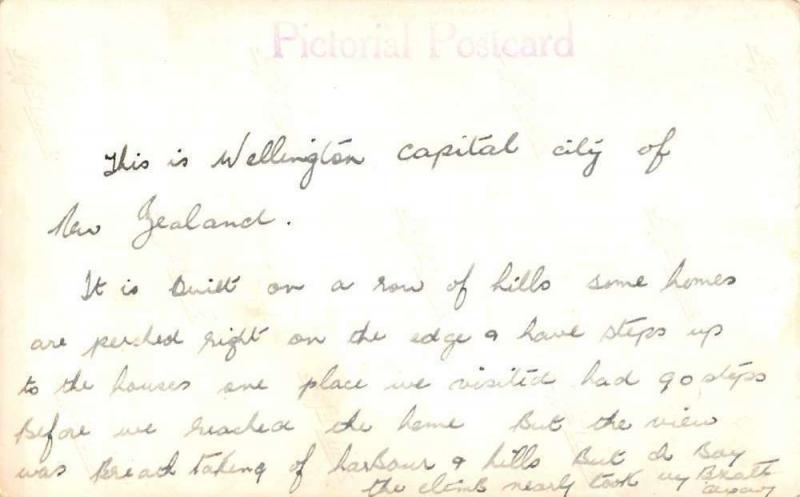 Pictorial Postcard
This is Wellington capital city of
New Zealand.
It is Built on a row of hills some homes
are perched right on the edge & have steps up
to the houses one place we visited had 90 steps
Before we reached the home But the view
was Breath taking of harBour & hills But oh Boy
the climB nearly took my Breath
away